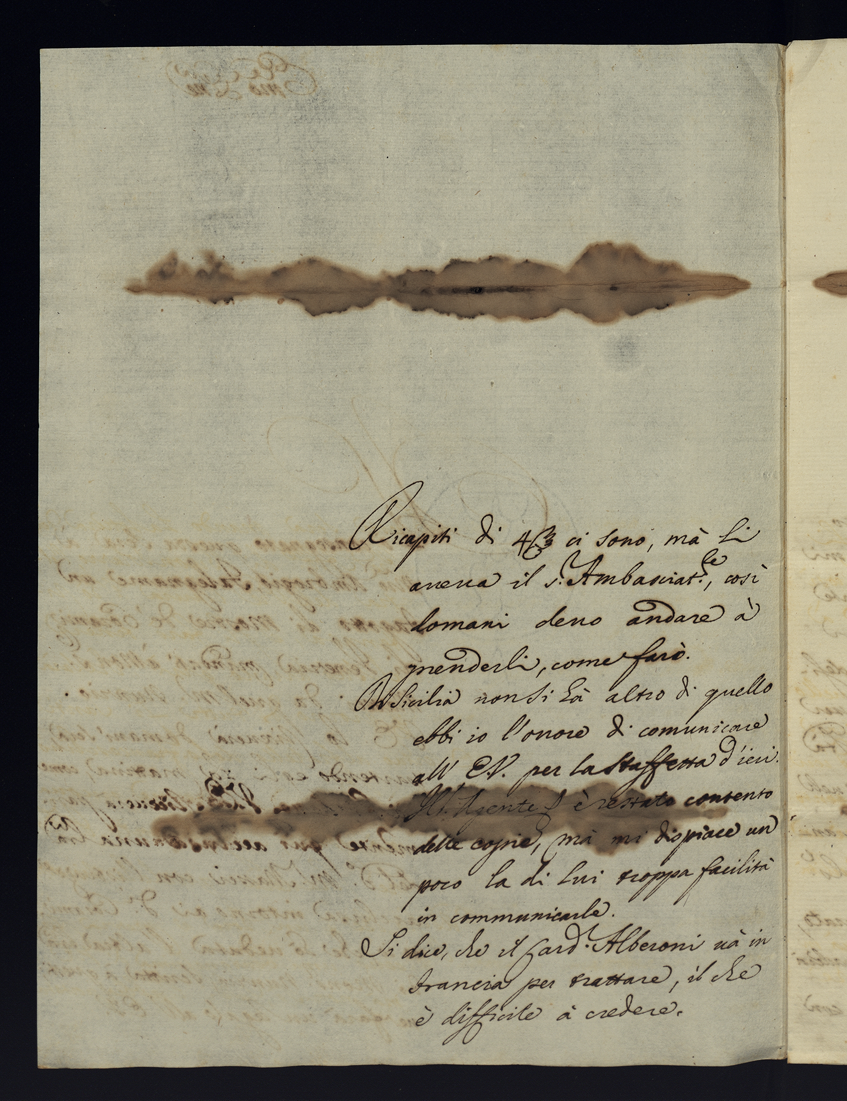 Ricapiti di ci sono, mà li
aveva il s.r Ambasciat.re, così
domani devo andare à
prenderli, come farò.
In Sicilia non si hà altro di quello
ebbi io l'onore di comunicare
all' E.V. per la staffetta d'ieri.
è restato contento
delle copie, mà mi dispiace un
poco la di lui troppa facilità
in communicarle.
Si dice, che il Card. Alberoni và in
Francia per trattare, il che
è difficile à credere.